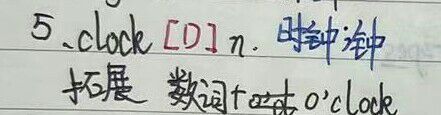 5、clock [D] n. 时钟;钟
拓展 数词+o'clock